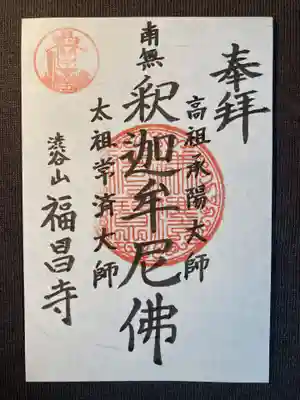 奉拝
高祖承陽大師
南無釈迦牟尼佛
太祖常済大師
渋谷山
福昌寺